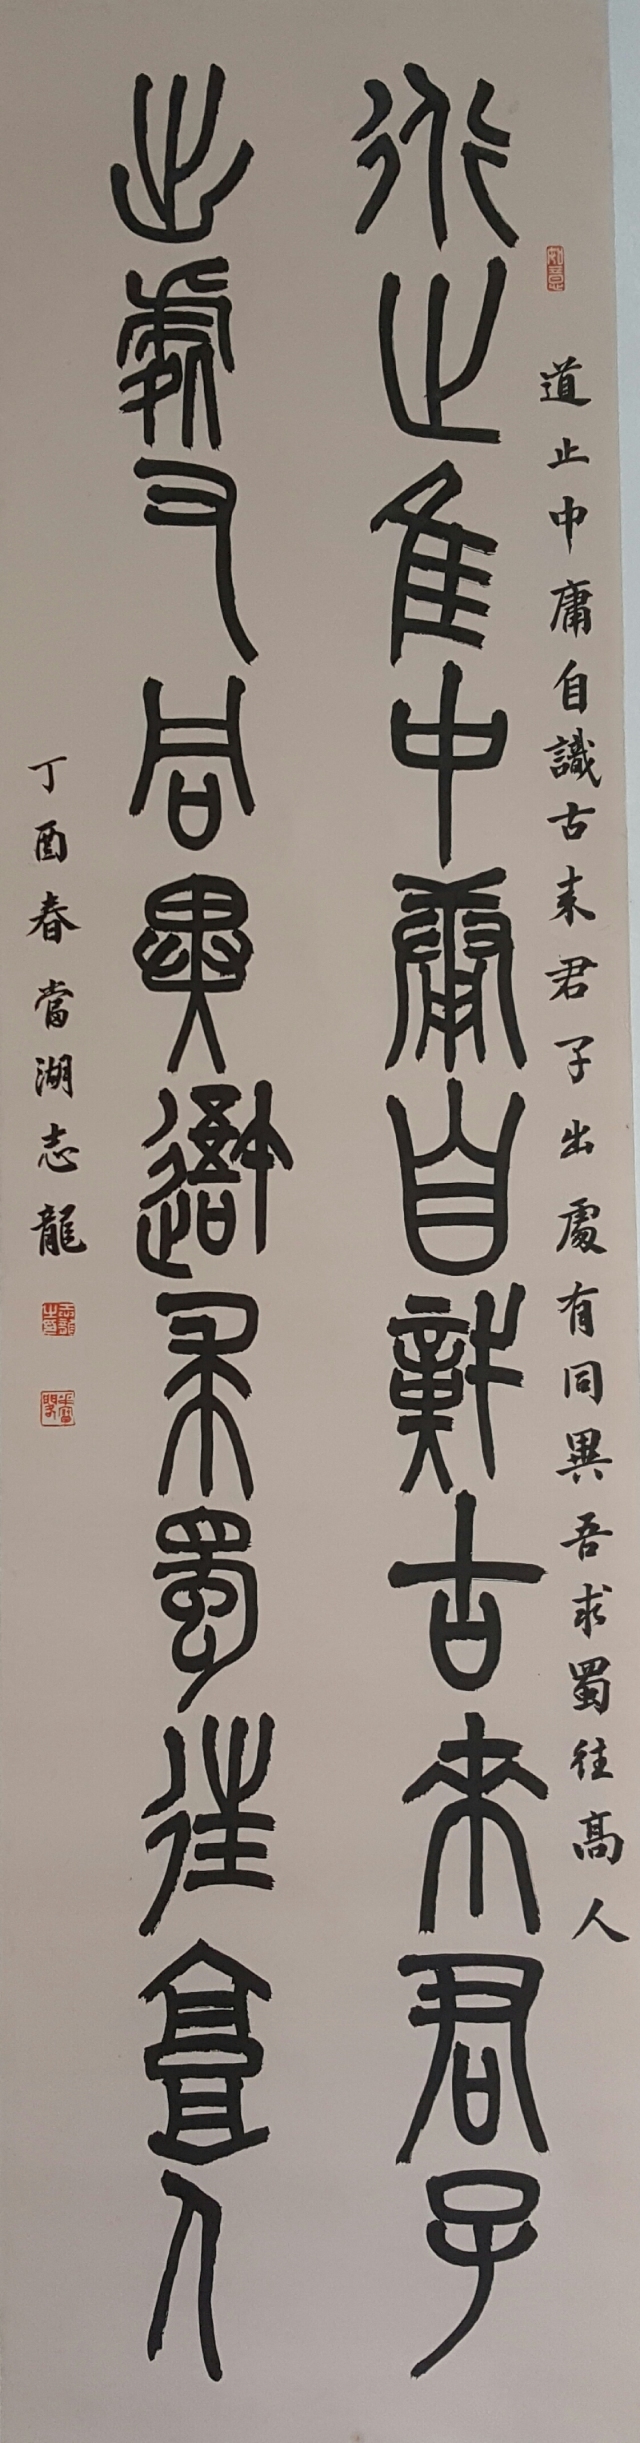 如意
道止中庸自識古来君子出處有同異吾求蜀往高人
行止隹中庸自識古來君子
出處又同異吾求蜀往高人
丁酉春當湖志龍
志龍之印